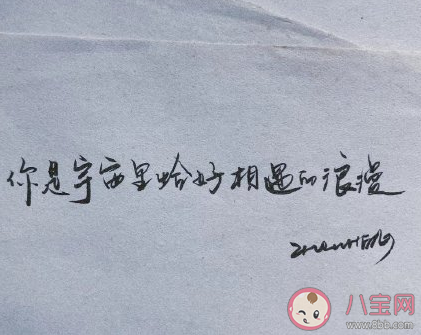 你是宇宙里恰好相遇的浪漫
八宝网
www.8bb.com